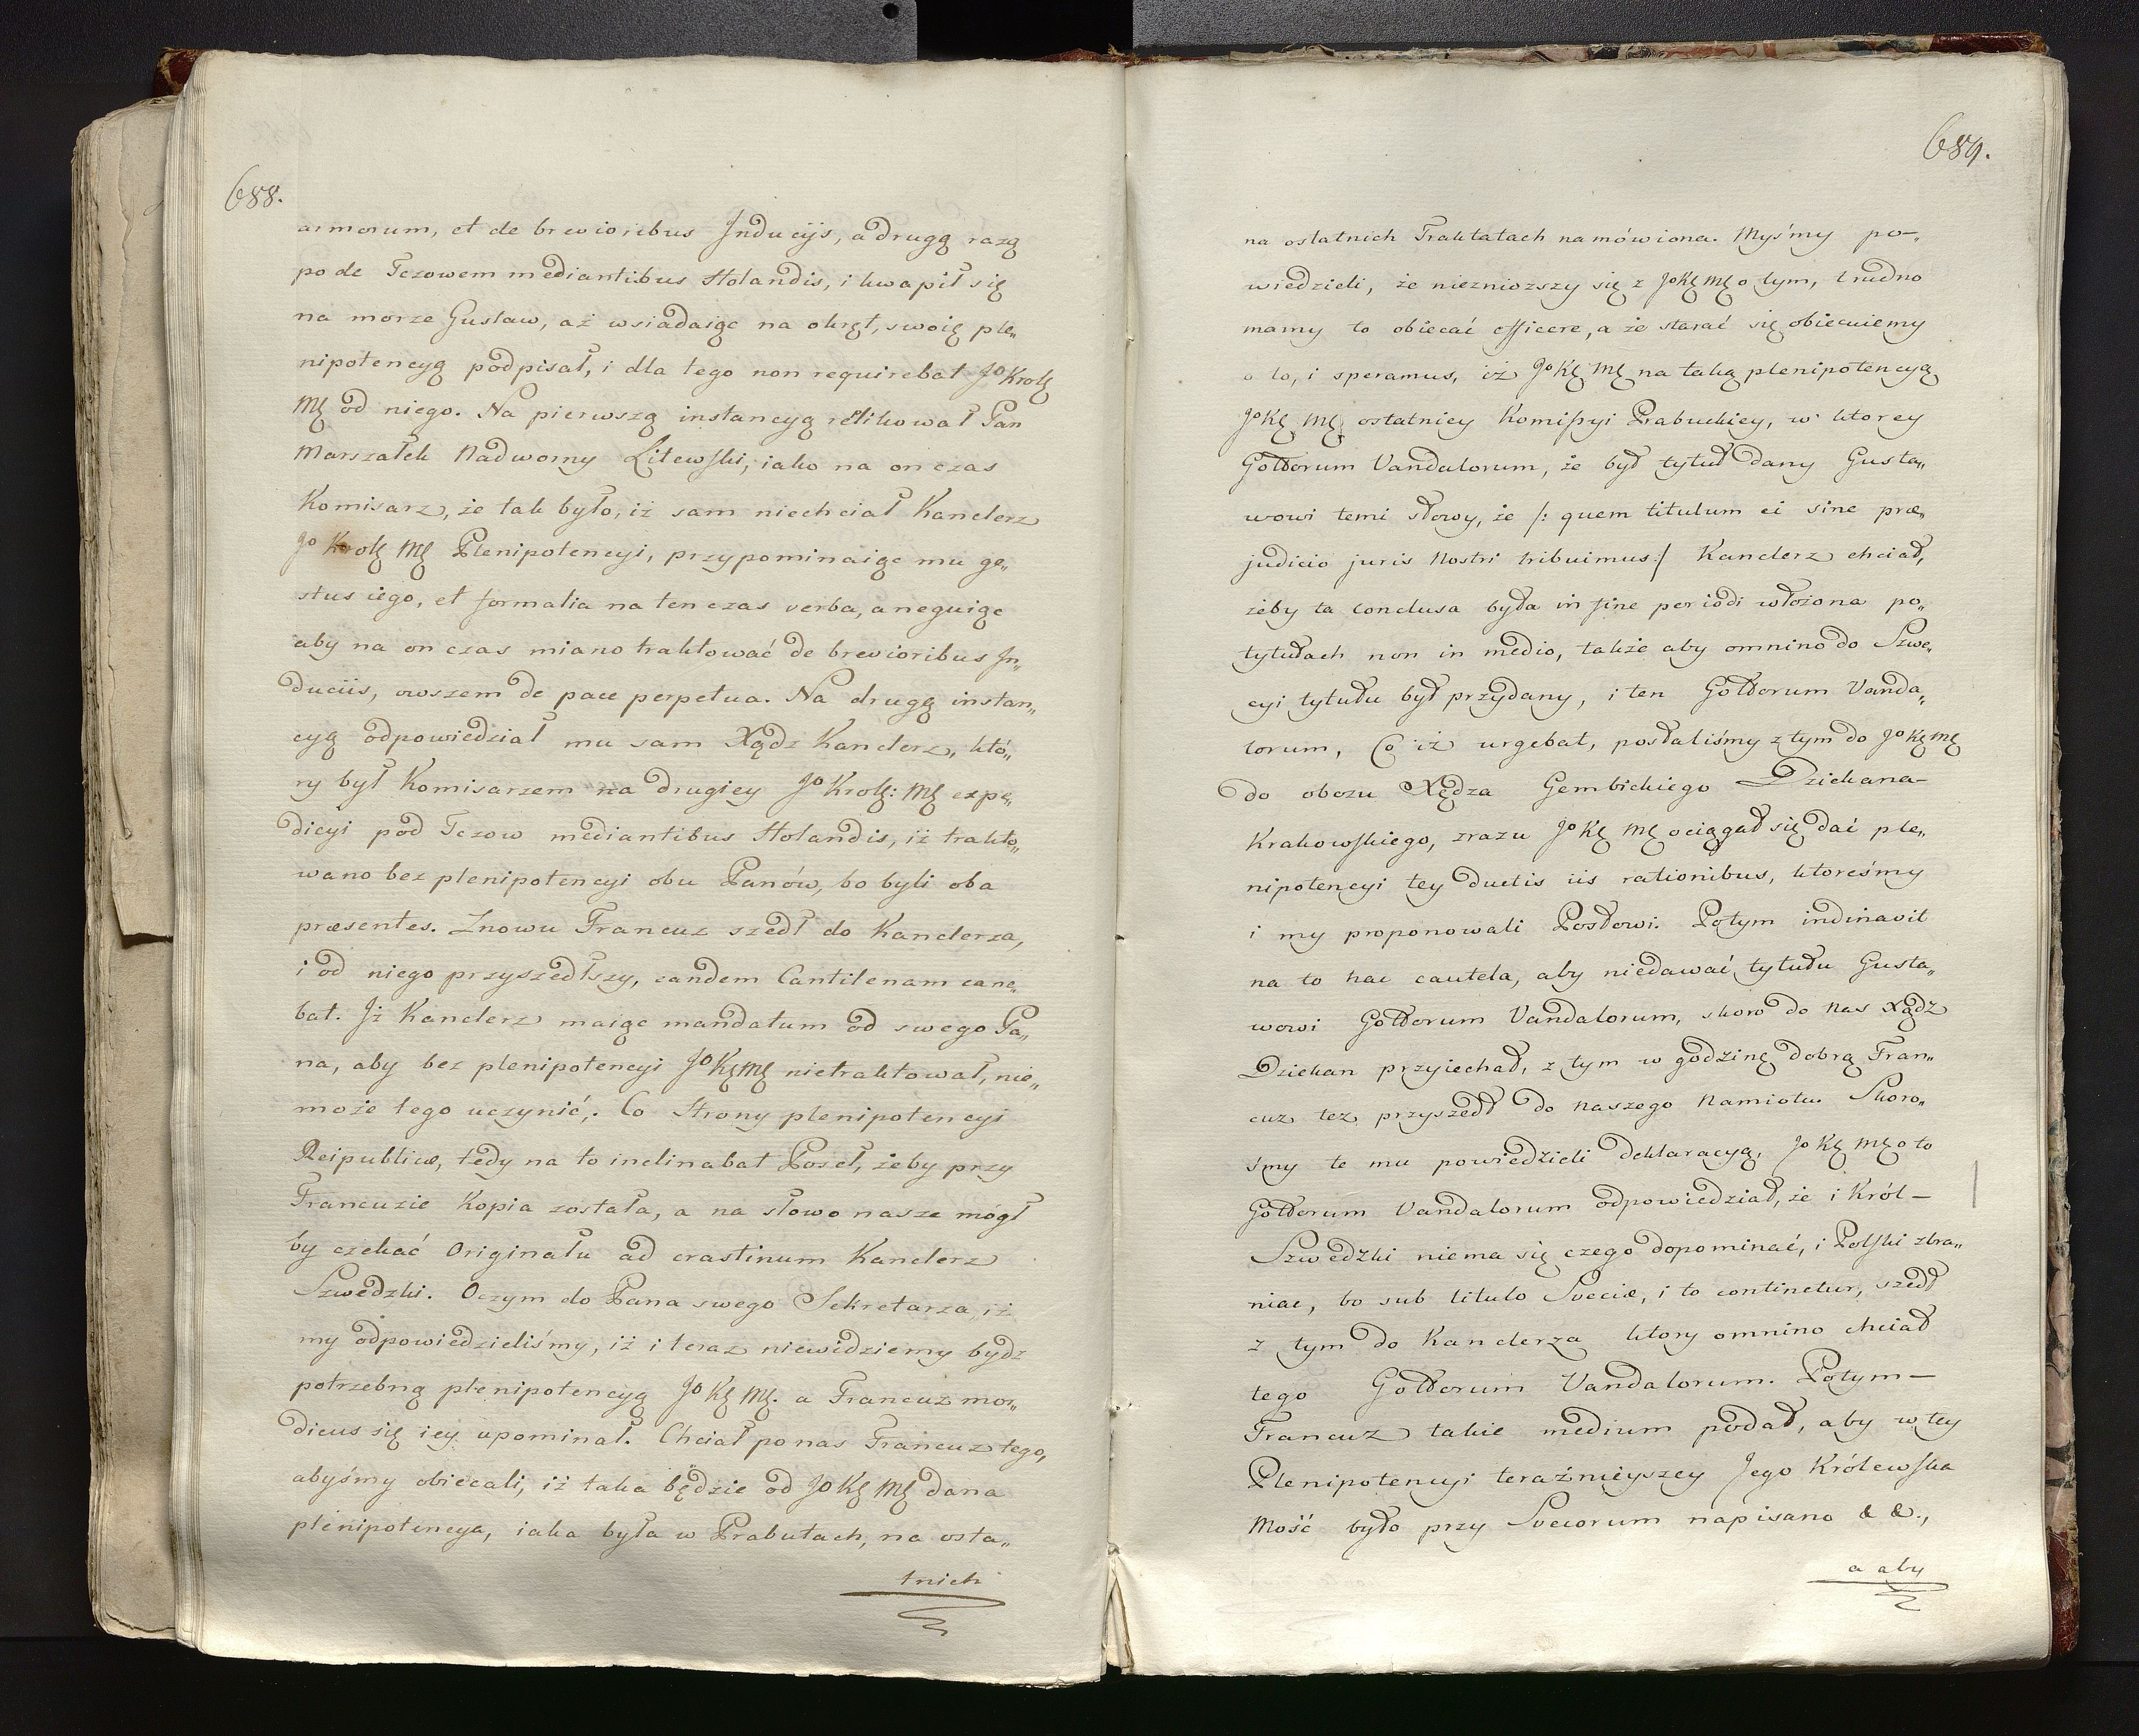 688.
armorum, et de brevioribus Inducijs, a drugą razą
pode Tczowem mediantibus Holandis, i kwapił się
na morze Gustaw, aż wsiadaiąc na okręt, swoię ple„
nipotencyą podpisał, i dla tego non requirebat JoKrolę
Mę od niego. Na pierwszą instancyą replikował Pan
Marszałek Nadworny Litewski, iako na on czas
Komisarz, że tak było, iż sam niechciał Kanclerz
Jo Krolę Mę Plenipotencyi, przypominaiąc mu ge„
stus iego, et formalia na ten czas verba, a neguiąc
aby na on czas miano traktować de brevioribus In„
duciis, owszem de pace perpetua. Na drugą instan„
cyą odpowiedział mu sam Xądz Kanclerz, któ„
ry był Komisarzem na drugiey Jo Krolę: Mę expe„
dicyi pod Tczow mediantibus Holandis, iż trakto„
wano bez plenipotencyi obu Panów, bo byli oba
præsentes. Znowu Francuz szedł do Kanclerza,
i od niego przyszedłszy, eandem Cantilenam cane„
bat. Iż Kanclerz maiąc mandatum od swego Pa„
na, aby bez plenipotencyi JoKęMę nietraktował, nie„
może tego uczynić. Co Strony plenipotencyi
Reipublicæ, tedy na to inclinabat Poseł, żeby przy
Francuzie Kopia została, a na słowo nasze mógł
by czekać Originału ad crastinum Kanclerz
Szwedzki. Oczym do Pana swego Sekretarza, iż
my odpowiedzieliśmy, iż i teraz niewidziemy bydz
potrzebną plenipotencyą Jo Kę Mę. a Francuz mor„
dicus się iey upominał. Chciał ponas Francuz tego,
abyśmy obiecali, iż taka będzie od Jo Kę Mę dana
plenipotencya, iaka była w Prabutach, na osta„
tnich
689.
na ostatnich Traktatach namówiona. Myśmy po„
wiedzieli, że niezniozszy się z JoKę Mę o tym, trudno
mamy to obiecać efficere, a że starać się obiecuiemy
o to, i speramus, iż Jo Kę Mę na taką plenipotencyą
JoKę Mę ostatniey Komißyi Prabuckiey, w ktorey
Gottorum Vandalorum, że był tytuł dany Gusta„
wowi temi słowy, że /: quem titulum ei sine præ„
judicio juris Nostri tribuimus:/ Kanclerz chciał,
żeby ta conclusa była in fine periodi włożona po„
tytułach non in medio, także aby omnino do Szwe„
cyi tytułu był przydany, i ten Gottorum Vanda„
lorum, Co iż urgebat, posłaliśmy z tym do Jo Kę Mę
do obozu Xędza Gembickiego Dziekana
Krakowskiego, zrazu Jo Kę Mę ociągał się dać ple„
nipotencyi tey ductis iis rationibus, ktoreśmy
i my proponowali Posłowi. Potym inclinavit
na to hac cautela, aby niedawać tytułu Gusta„
wowi Gottorum Vandalorum, skoro do nas Xądz
Dziekan przyiechał, z tym w godzinę dobrą Fran„
cuz też przyszedł do naszego Namiotu. Skoro„
śmy te mu powiedzieli deklaracyą, Jo Kę Mę o to
Gottorum Vandalorum odpowiedział, że i Król
Szwedzki niema się czego dopominać, i Polski zbra„
niać, bo sub titulo Sveciæ, i to continetur, szedł
z tym do Kanclerza ktory omnino chciał
tego Gottorum Vandalorum. Potym
Francuz takie medium podał, aby w tey
Plenipotencyi teraźnieyszey Jego Królewska
Mość było przy Svecorum napisano & &.,
a aby